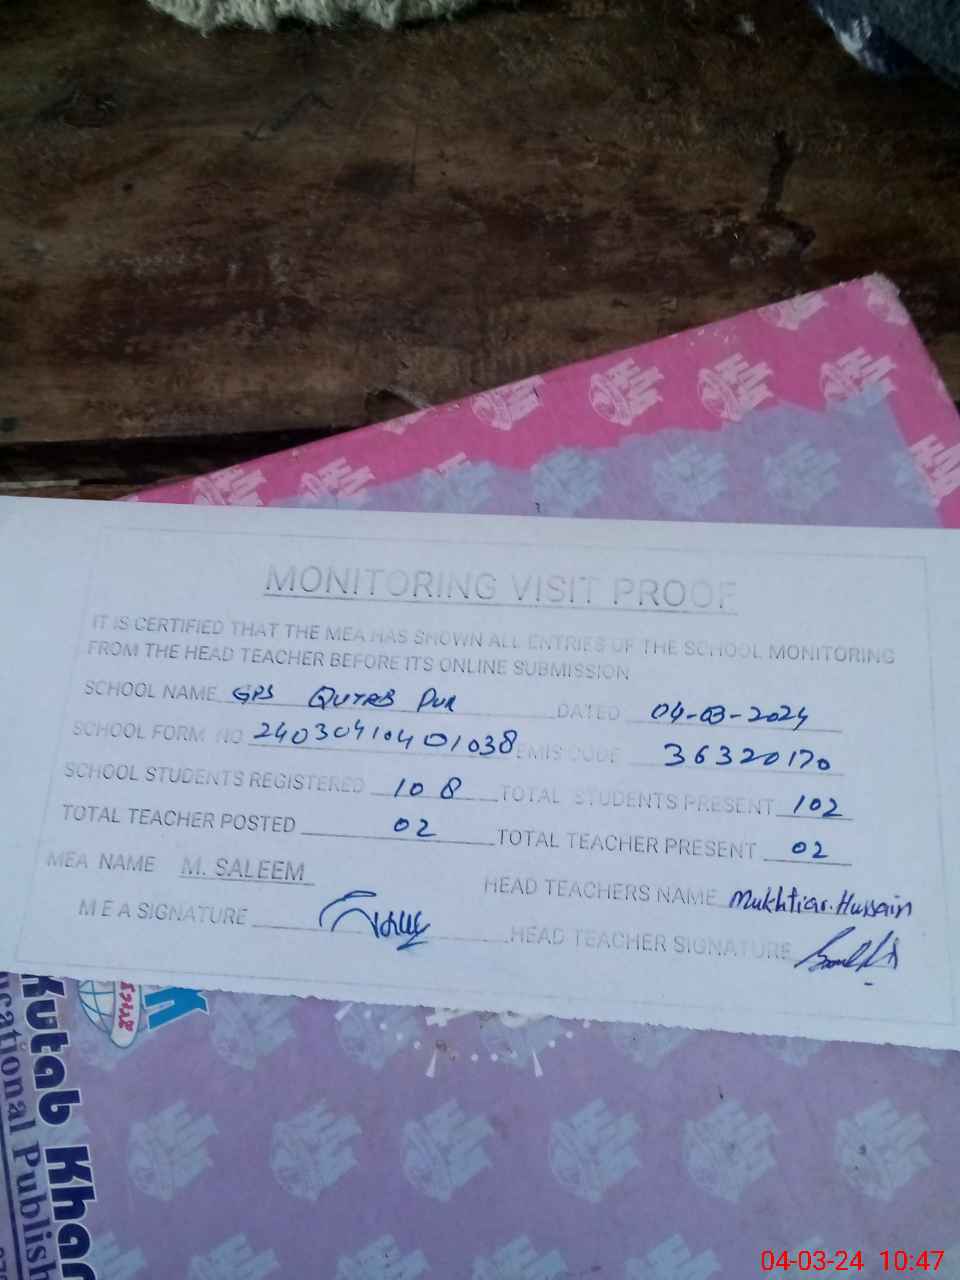 MONITORING VISIT PROOF
IT IS CERTIFIED THAT THE MEA HAS SHOWN ALL ENTRIES OF THE SCHOOL MONITORING
FROM THE HEAD TEACHER BEFORE ITS ONLINE SUBMISSION
SCHOOL NAME GPS QUTAB PUR DATED 04-03-2024
SCHOOL FORM NO 24030410401038 EMIS CODE 36320170
SCHOOL STUDENTS REGISTERED 108 TOTAL STUDENTS PRESENT 102
TOTAL TEACHER POSTED 02 TOTAL TEACHER PRESENT 02
MEA NAME M. SALEEM HEAD TEACHERS NAME Mukhtiar.Hussain
M E A SIGNATURE HEAD TEACHER SIGNATURE
Kutab Khan
cational Publish
04-03-24 10:47